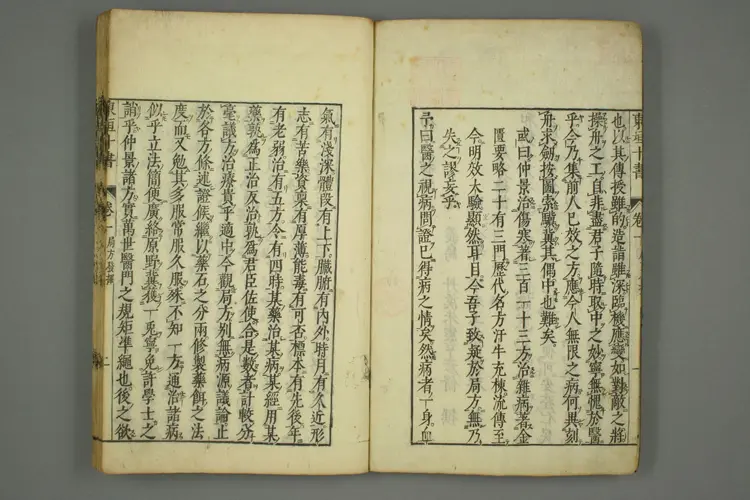 東垣十書 卷一
也以其傳授雖的造詣雖深臨機應變如對敵之將
操舟之工自非盡君子隨時取中之妙寧無愧於醫
乎今乃集前人已效之方應今人無限之病何異刻
舟求劍按圖索驥冀其偶中也難矣
或曰仲景治傷寒著三百一十三方治雜病著金
匱要略二十有三門歷代名方汗牛充棟流傳至
今明效大驗顯然耳目今吾子致疑於局方無乃
失之謬妄乎
予曰醫之視病問證已得病之情矣然病者一身血
氣有淺深體段有上下臟腑有內外時月有久近形
志有苦樂資稟有厚薄能毒有可否標本有先後年
有老弱治有五方令有四時某藥治某病某經用某
藥孰為正治反治孰為君臣佐使合是數者計較分
毫議方治療貴乎適中今觀局方別無病源議論止
於各方條述證候繼以藥石之分兩修製藥餌之法
度而又勉其多服常服久服殊不知一方通治諸病
似乎立法簡便廣絡原野冀獲一兎寧免許學士之
誚乎仲景諸方實萬世醫門之規矩準繩也後之欲
東垣十書 卷一 局方發揮 二